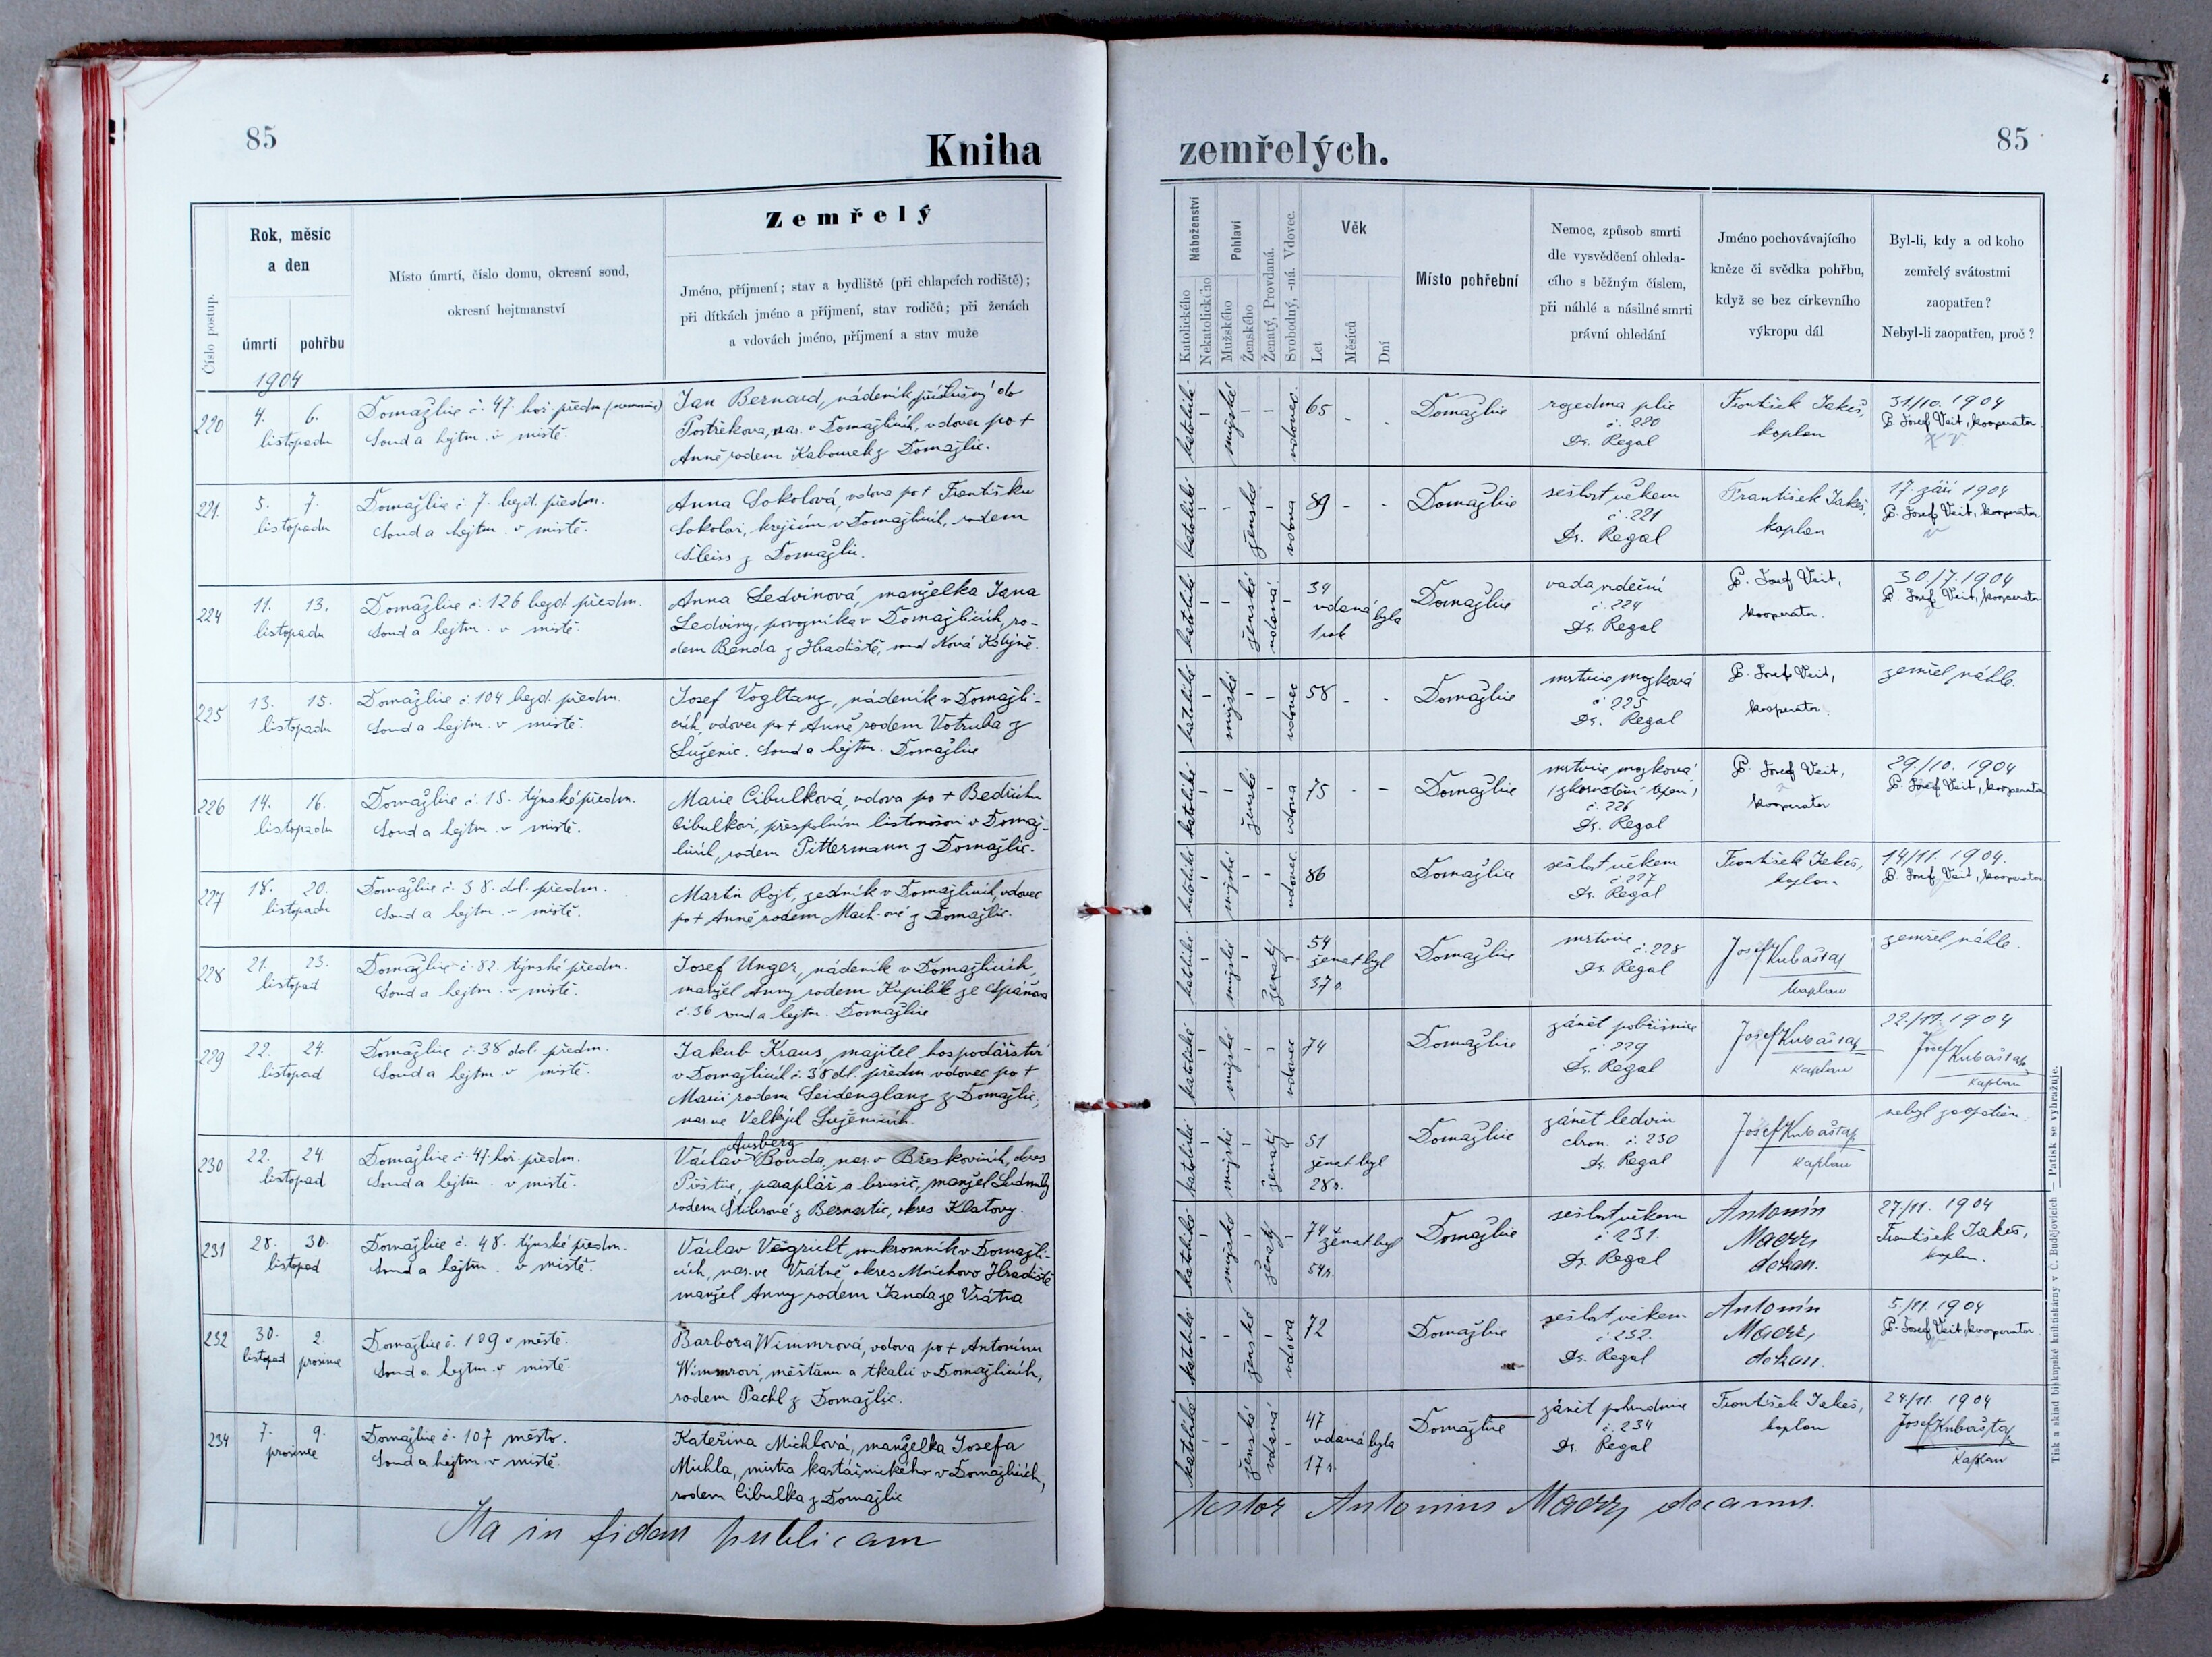 85
Kniha
Zemřelý
Číslo postup.
Rok, měsíc
a den
úmrtí
pohřbu
Místo úmrtí, číslo domu, okresní soud,
okresní hejtmanství
Jméno, příjmení; stav a bydliště (při chlapcích rodiště);
při dítkách jméno a příjmení, stav rodičů; při ženách
a vdovách jméno, příjmení a stav muže
1904
220
4. 6.
listopadu
Domažlice č. 47. hoř. předm.
Soud a hejtm. v místě.
Jan Bernard, nádeník, příslušný do
Postřekova, nar. v Domažlicích, vdovec po †
Anně rodem Kabourek z Domažlic.
221.
5. 7.
listopadu
Domažlice č. 7. bezd. předm.
Soud a hejtm. v místě.
Anna Sokolová, vdova po † Františku
Sokolovi, krejčím v Domažlicích, rodem
Šleiss z Domažlic.
224
11. 13.
listopadu
Domažlice č. 126 bezd. předm.
Soud a hejtm. v místě.
Anna Ledvinová, manželka Jana
Ledviny, povozníka v Domažlicích, ro-
dem Benda z Hradiště, soud Nová Kdyně.
225
13. 15.
listopadu
Domažlice č. 104 bezd. předm.
Soud a hejtm. v místě.
Josef Vogltanz, nádeník v Domažli-
cích, vdovec po † Anně rodem Votruba z
Luženic. Soud a hejtm. Domažlice
226
14. 16.
listopadu
Domažlice č. 15. týnské předm.
Soud a hejtm. v místě.
Marie Cibulková, vdova po † Bedřichu
Cibulkovi, přespolním listonoši v Domaž-
licích, rodem Pittermann z Domažlic.
227
18. 20.
listopadu
Domažlice č. 38. dol. předm.
Soud a hejtm. v místě.
Martin Rojt, zedník v Domažlicích, vdovec
po † Anně rodem Mach-ové z Domažlic.
228
21. 23.
listopad
Domažlice č. 82. týnské předm.
Soud a hejtm. v místě.
Josef Unger, nádeník v Domažlicích,
manžel Anny rodem Kupilík ze Spáňova
č. 36 soud a hejtm. Domažlice
229
22. 24.
listopad
Domažlice č. 38 dol. předm.
Soud a hejtm. v místě.
Jakub Kraus, majitel hospodářství
v Domažlicích č. 38 dl. předm. vdovec po †
Marii rodem Seidenglanz z Domažlic,
nar. ve Velkých Luženicích.
230
22. 24.
listopad
Domažlice č. 47. hoř. předm.
Soud a hejtm. v místě.
Ausberg
Václav Bouda, nar. v Břeskovicích, okres
Přeštice, paraplář a brusič, manžel Ludmily
rodem Štiborové z Bernartic, okres Klatovy.
231
28. 30.
listopad
Domažlice č. 48. týnské předm.
Soud a hejtm. v místě.
Václav Vegricht, soukromník v Domažli-
cích, nar. ve Vrátně, okres Mnichovo Hradiště
manžel Anny rodem Janda ze Vrátna
232
30. 2.
listopad prosince
Domažlice č. 129 v městě.
Soud a hejtm. v místě.
Barbora Wimmrová, vdova po † Antonínu
Wimmrovi, měšťanu a tkalci v Domažlicích,
rodem Pachl z Domažlic.
234
7. 9.
prosince
Domažlice č. 107 město.
Soud a hejtm. v místě.
Kateřina Michlová, manželka Josefa
Michla, mistra kartáčnického v Domažlicích,
rodem Cibulka z Domažlic
Ita in fidem publicam
zemřelých.
85
Náboženství
Katolického
Nekatolického
Pohlaví
Mužského
Ženského
Ženatý, Provdaná.
Svobodný, -ná. Vdovec.
Věk
Let
Měsíců
Dní
Místo pohřební
Nemoc, způsob smrti
dle vysvědčení ohleda-
cího s běžným číslem,
při náhlé a násilné smrti
právní ohledání
Jméno pochovávajícího
kněze či svědka pohřbu,
když se bez církevního
výkropu dál
Byl-li, kdy a od koho
zemřelý svátostmi
zaopatřen?
Nebyl-li zaopatřen, proč?
katolické - mužské - - vdovec. 65 - -
Domažlice
rozedma plic
č. 220
Dr. Regal
František Jakeš,
kaplan
31/10. 1904
P. Josef Veit, kooperator
katolické - - ženské - vdova 89 - -
Domažlice
sešlost věkem
č. 221
Dr. Regal
František Jakeš,
kaplan
17. září 1904
P. Josef Veit, kooperator
katolické - - ženské vdaná -
34
vdaná byla
1 rok
Domažlice
vada srdeční
č. 224
Dr. Regal
P. Josef Veit,
kooperator.
30/7. 1904
P. Josef Veit, kooperator
katolické - mužské - - vdovec 58 - -
Domažlice
mrtvice mozková
č. 225
Dr. Regal
P. Josef Veit,
kooperator.
zemřel náhle.
katolické - - ženské - vdova 75 - -
Domažlice
mrtvice mozková
č. 226
Dr. Regal
P. Josef Veit,
kooperator
29./10. 1904
P. Josef Veit, kooperator
katolické - mužské - - vdovec. 86
Domažlice
sešlost věkem
č. 227
Dr. Regal
František Jakeš,
kaplan
14/11. 1904.
P. Josef Veit, kooperator
katolické - mužské - ženatý -
54
ženat byl
37 r.
Domažlice
mrtvice
č. 228
Dr. Regal
Josef Kubaštaž
kaplan
zemřel náhle.
katolické - mužské - - vdovec 74
Domažlice
zánět pobřišnice
č. 229
Dr. Regal
Josef Kubaštaž
kaplan
22./11. 1904
Josef Kubaštaž
kaplan
katolické - mužské - ženatý -
51
ženat byl
28 r.
Domažlice
zánět ledvin
chron. č. 230
Dr. Regal
Josef Kubaštaž
kaplan
nebyl zaopatřen
katolické - mužské - ženatý -
74
ženat byl
54 r.
Domažlice
sešlost věkem
č. 231.
Dr. Regal
Antonín
Maerz,
děkan.
27/11. 1904
František Jakeš,
kaplan.
katolické - - ženské - vdova 72
Domažlice
sešlost věkem
č. 232.
Dr. Regal
Antonín
Maerz,
děkan.
5./11. 1904
P. Josef Veit, kooperator
katolické - - ženské vdaná -
47
vdaná byla
17 r.
Domažlice
zánět pohrudnice
č. 234
Dr. Regal
František Jakeš,
kaplan
24/11. 1904
Josef Kubaštaž
kaplan
testor Antonius Maerz, decanus.
Tisk a sklad biskupské knihtiskárny v Č. Budějovicích — Patisk se vyhražuje.